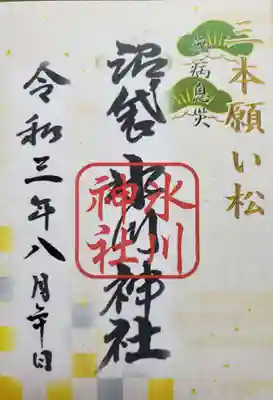 三本願い松
無病息災
沼袋氷川神社
氷川
神社
令和三年八月 日